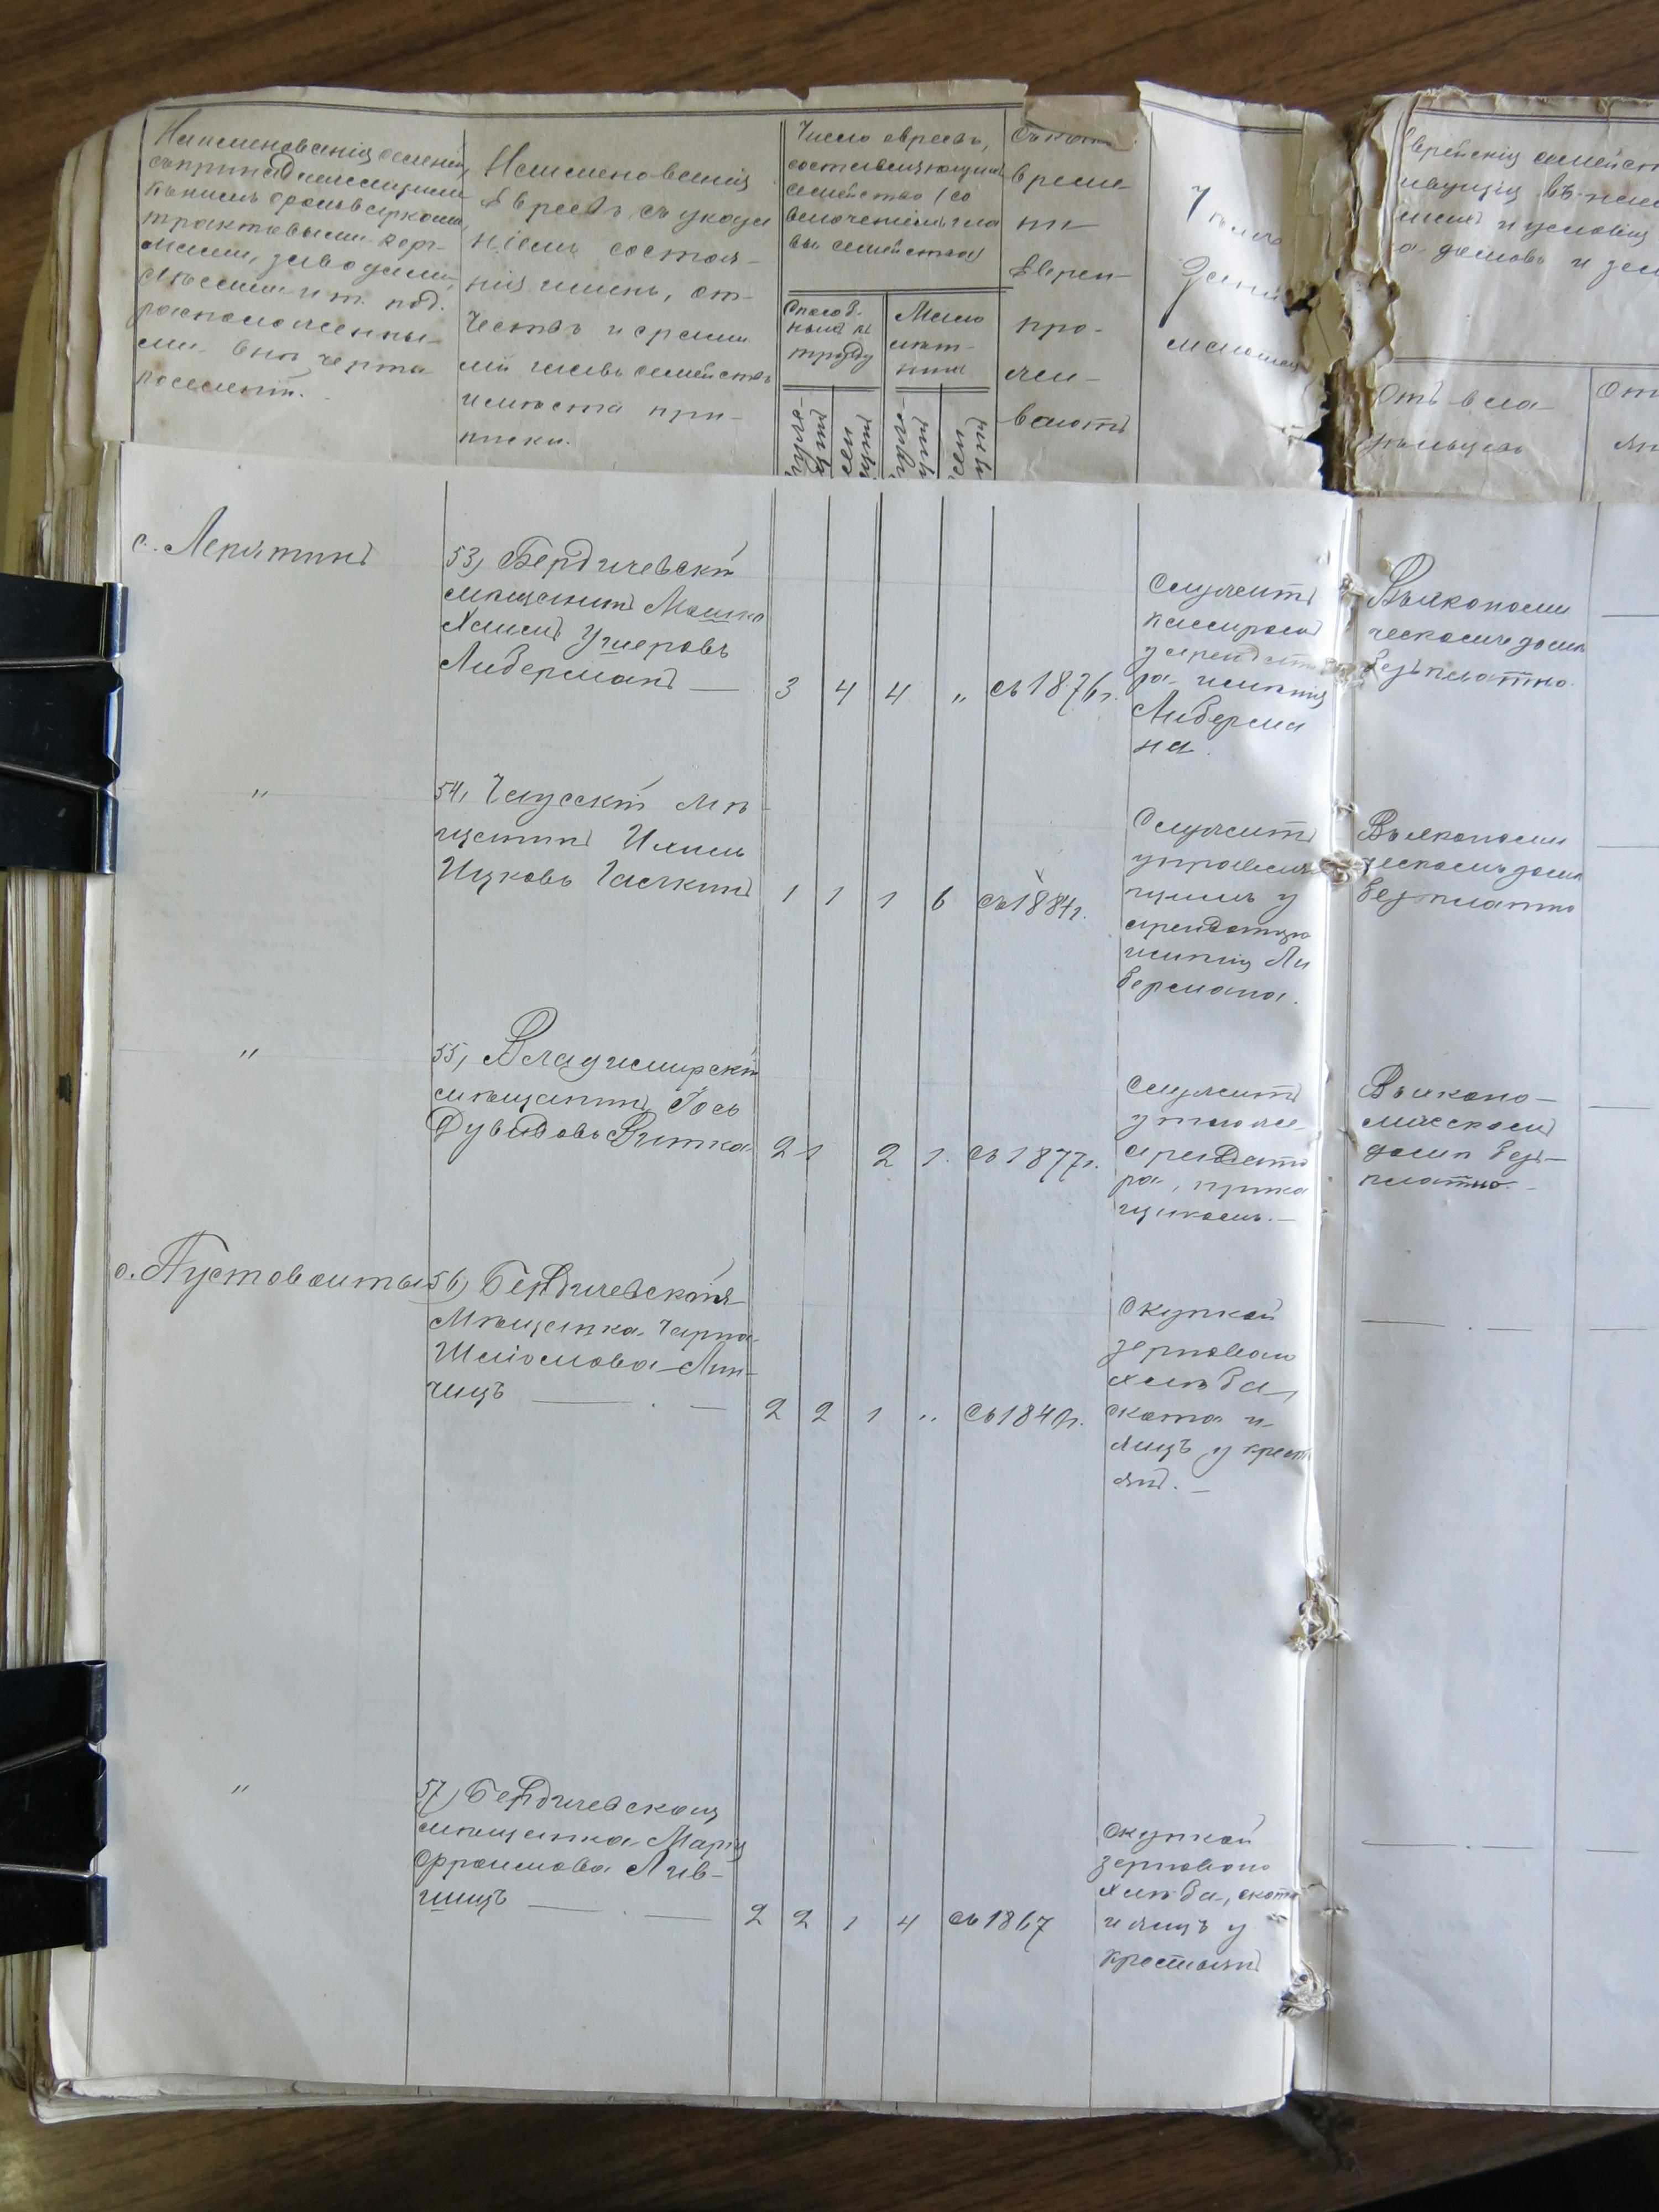 Наименованія селеній,
съ принадлежащими
къ нимъ фольварками,
трактовыми корч-
мами, заводами,
мѣстами и т. под.
расположенны-
ми внѣ черты
поселеній.
Наименованія
Евреевъ съ указа
ніемъ состоя-
нія именъ, от-
чествъ и фами
лій главъ семействъ
и мѣста при-
писки.
Число евреевъ,
составляющихъ
семейство (со
включеніемъ гла
вы семейства)
Способ.
ныхъ къ
труду
Мало
лѣт-
нихъ
муже-
ски
жен
ски
муже-
ски
жен
ски
Съ какого
време
ни
Евреи
про-
жи-
ваютъ
Чѣмъ
зани
маются
Еврейскія семейст
Отъ вла
дѣльцевъ
От
с. Лепятинъ
53) Бердичевскій
мѣщанинъ Мошко
Хаимъ Ушеровъ
Либерманъ —
3 4 4 „ съ 1876 г.
Служитъ
кассиромъ
у арендато
ра имѣнія
Либерма
на.
Въ економи
ческомъ домѣ
безплатно.
"
54) Чаусскій мѣ
щанинъ Илья
Ицковъ Галкинъ
1 1 1 6 съ 1884 г.
Служитъ
управляю
щимъ у
арендатора
имѣнія Ли
бермана.
Въ економи
ческомъ домѣ
безплатно
"
55) Владимірскій
мѣщанинъ Іось
Дувидовъ Витка
2 1 2 1. съ 1877 г.
Служитъ
у того же
арендато
ра, прика
щикомъ. —
Въ еконо-
мическомъ
домѣ без-
платно. —
с. Пустовойты
56) Бердичевская
Мѣщанка Чарна
Шліомова Лив-
чицъ — . —
2 2 1 „ съ 1840 г.
Скупкой
зерноваго
хлѣба,
скота и
яицъ у крест
янъ. —
— . —
"
57) Бердичевская
мѣщанка Марія
Фроимова Лив-
шицъ — . —
2 2 1 4 съ 1867
Скупкой
зерноваго
хлѣба, скота
и яицъ у
крестьянъ
— . —